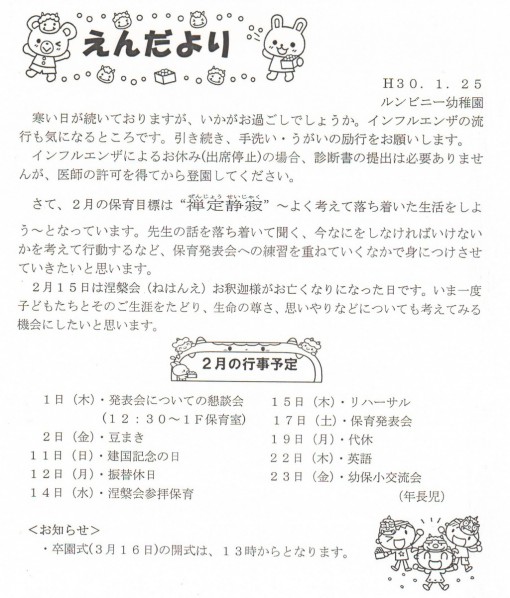 えんだより
H30.1.25
ルンビニー幼稚園
寒い日が続いておりますが、いかがお過ごしでしょうか。インフルエンザの流
行も気になるところです。引き続き、手洗い・うがいの励行をお願いします。
インフルエンザによるお休み(出席停止)の場合、診断書の提出は必要ありませ
んが、医師の許可を得てから登園してください。
ぜんじょう せいじゃく
さて、2月の保育目標は“禅定静寂”～よく考えて落ち着いた生活をしよ
う～となっています。先生の話を落ち着いて聞く、今なにをしなければいけない
かを考えて行動するなど、保育発表会への練習を重ねていくなかで身につけさせ
ていきたいと思います。
2月15日は涅槃会（ねはんえ）お釈迦様がお亡くなりになった日です。いま一度
子どもたちとそのご生涯をたどり、生命の尊さ、思いやりなどについても考えてみる
機会にしたいと思います。
2月の行事予定
1日（木）・発表会についての懇談会
(12:30～1F保育室)
2日（金）・豆まき
11日（日）・建国記念の日
12日（月）・振替休日
14日（水）・涅槃会参拝保育
15日（木）・リハーサル
17日（土）・保育発表会
19日（月）・代休
22日（木）・英語
23日（金）・幼保小交流会
（年長児）
＜お知らせ＞
・卒園式(3月16日)の開式は、13時からとなります。